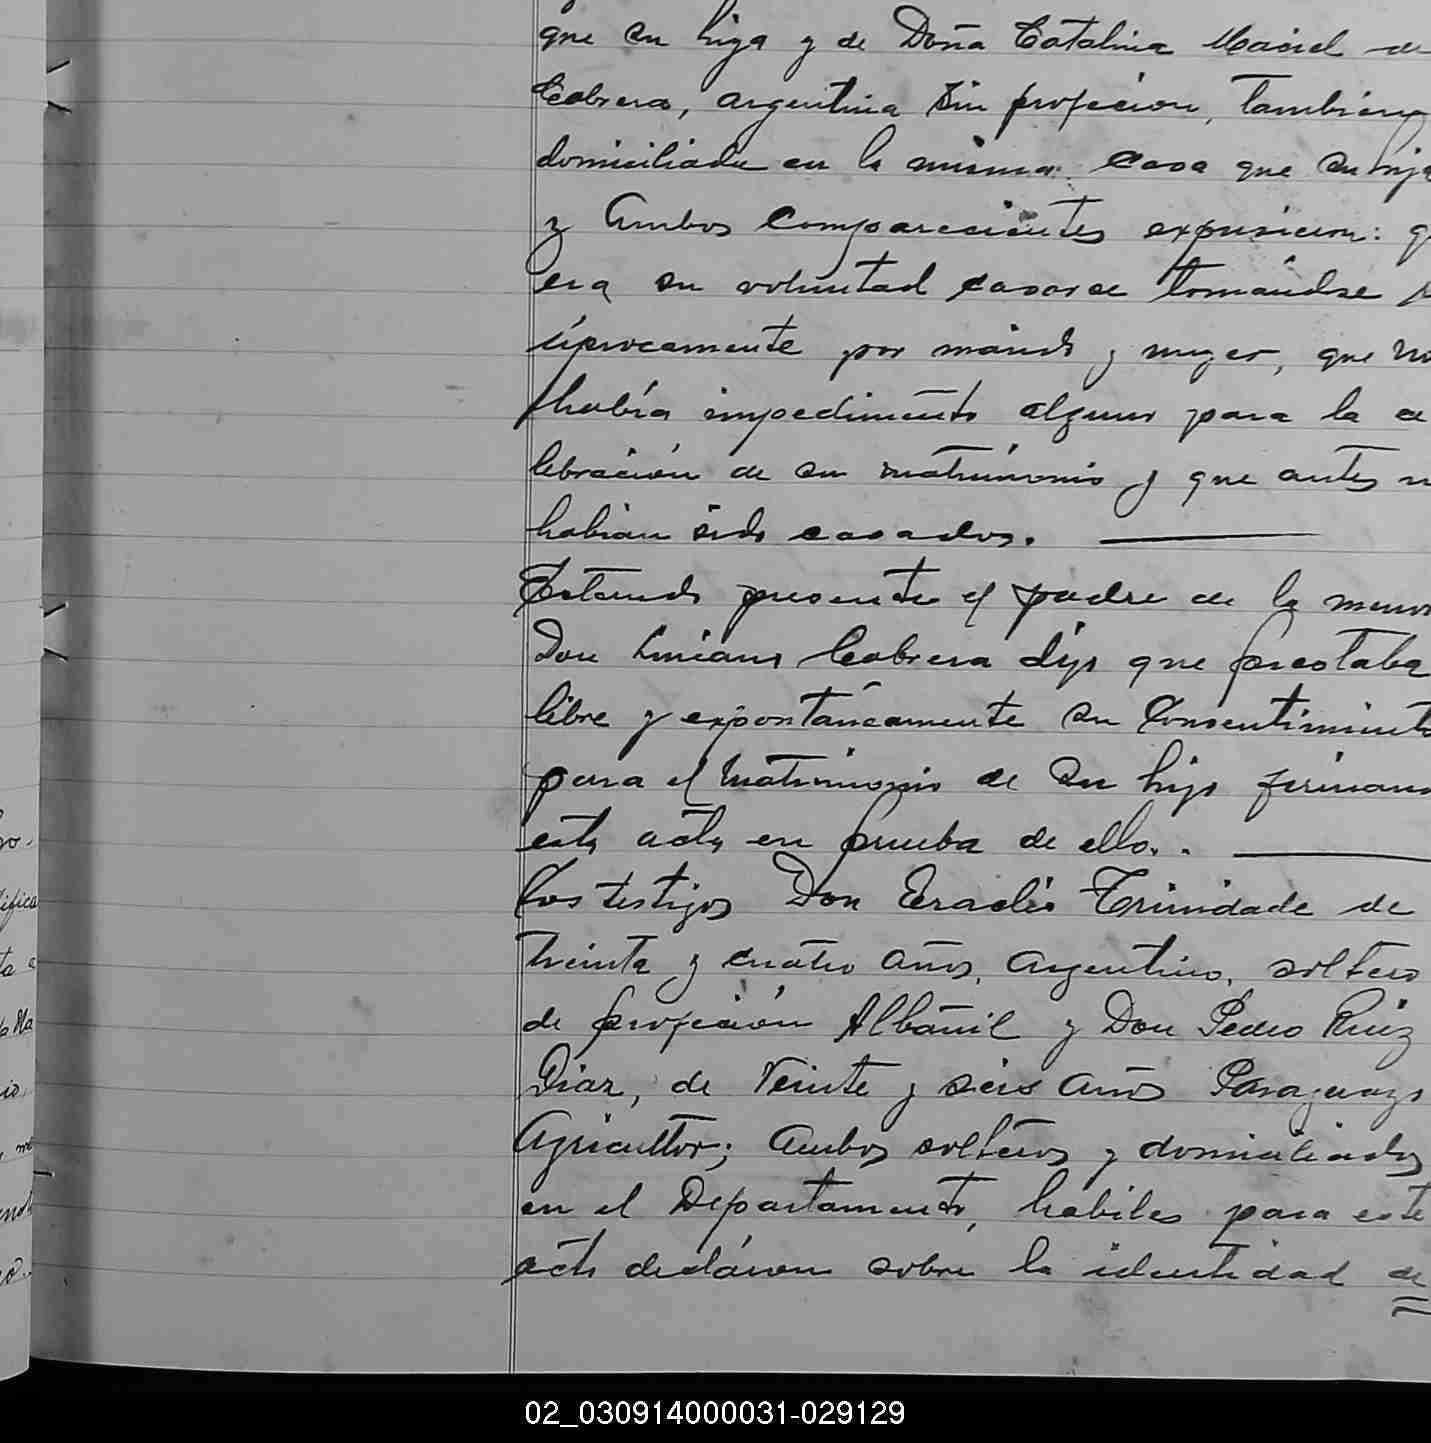 que su hija y de Doña Catalina Maciel de
Cabrera, argentina sin profecion, tambien
domiciliada en la misma casa que su hija
y Ambos comparecientes expusieron: q
era su voluntad casarse tomándose
ciprocamente por marido y muger, que no
habia impedimento alguno para la ce
lebracion de su matrimonio y que antes n
habian sido casados.
Estando presente el padre de la menor
Don Liniano Cabrera dijo que prestaba
libre y expontáneamente su Consentimiento
para el Matrimonio de su hijo firmand
esta acta en prueba de ello.
Los testigos Don Eraclio Trinidade de
treinta y cuatro años, argentino, soltero
de profecion Albañil y Don Pedro Ruiz
Diaz, de Veinte y seis años Paraguayo
Agricultor; Ambos solteros y domiciliados
en el Departamento, habiles para este
acto declaron sobre la identidad de
go.
ta a
02_030914000031-029129